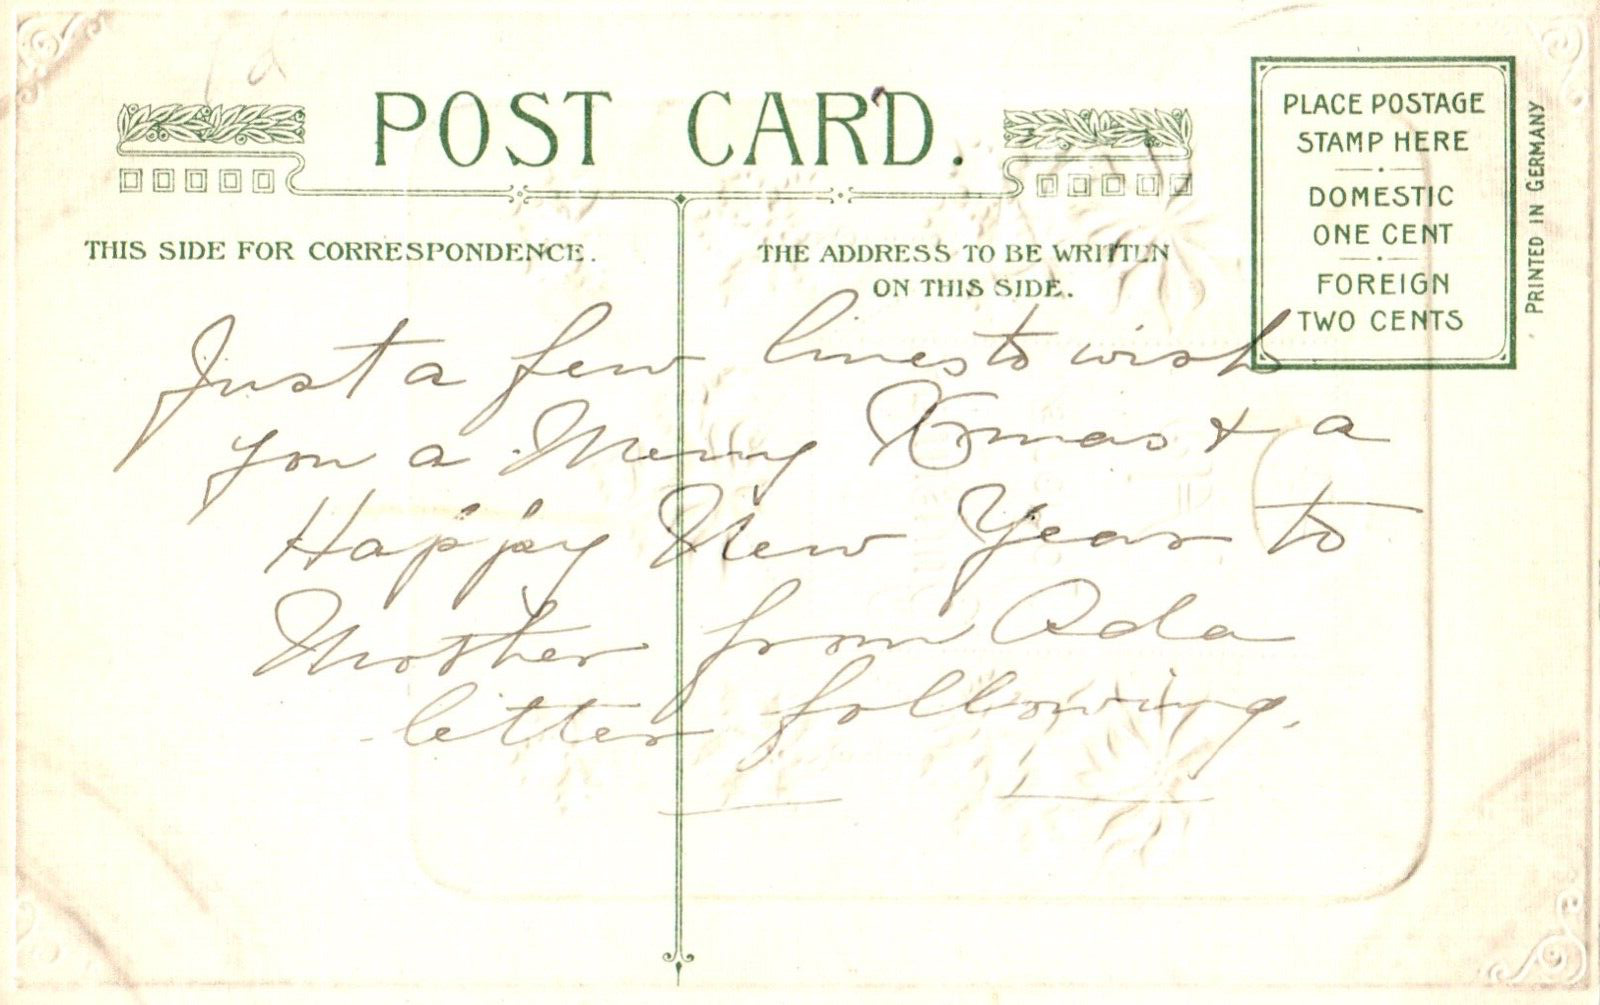 POST CARD.
THIS SIDE FOR CORRESPONDENCE.
THE ADDRESS TO BE WRITTEN
ON THIS SIDE.
PLACE POSTAGE
STAMP HERE
DOMESTIC
ONE CENT
FOREIGN
TWO CENTS
PRINTED IN GERMANY
Just a few lines to wish
you a Merry Xmas & a
Happy New Year to
Mother from Ada
letter following.